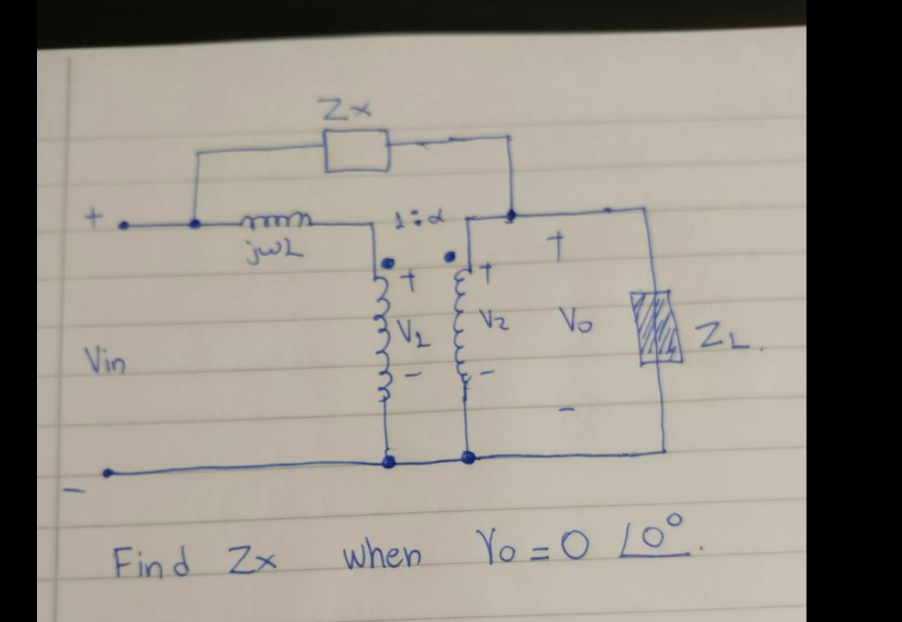 Zx
+
jωL
1:α
+
V1
-
+
V2
-
+
Vo
-
ZL.
Vin
-
Find Zx when Vo = 0 ∠0°.